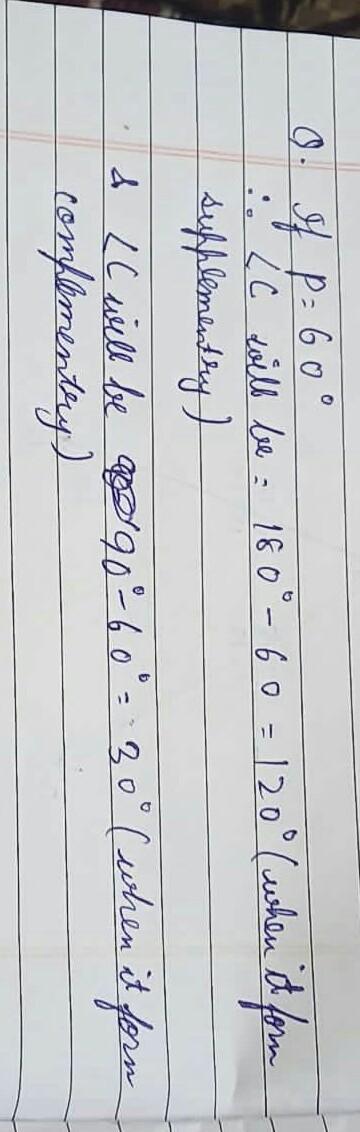 Q. If p = 60°
∴ ∠C will be = 180° - 60 = 120° (when it form
supplementry)
& ∠C will be 90° - 60° = 30° (when it form
complementry)